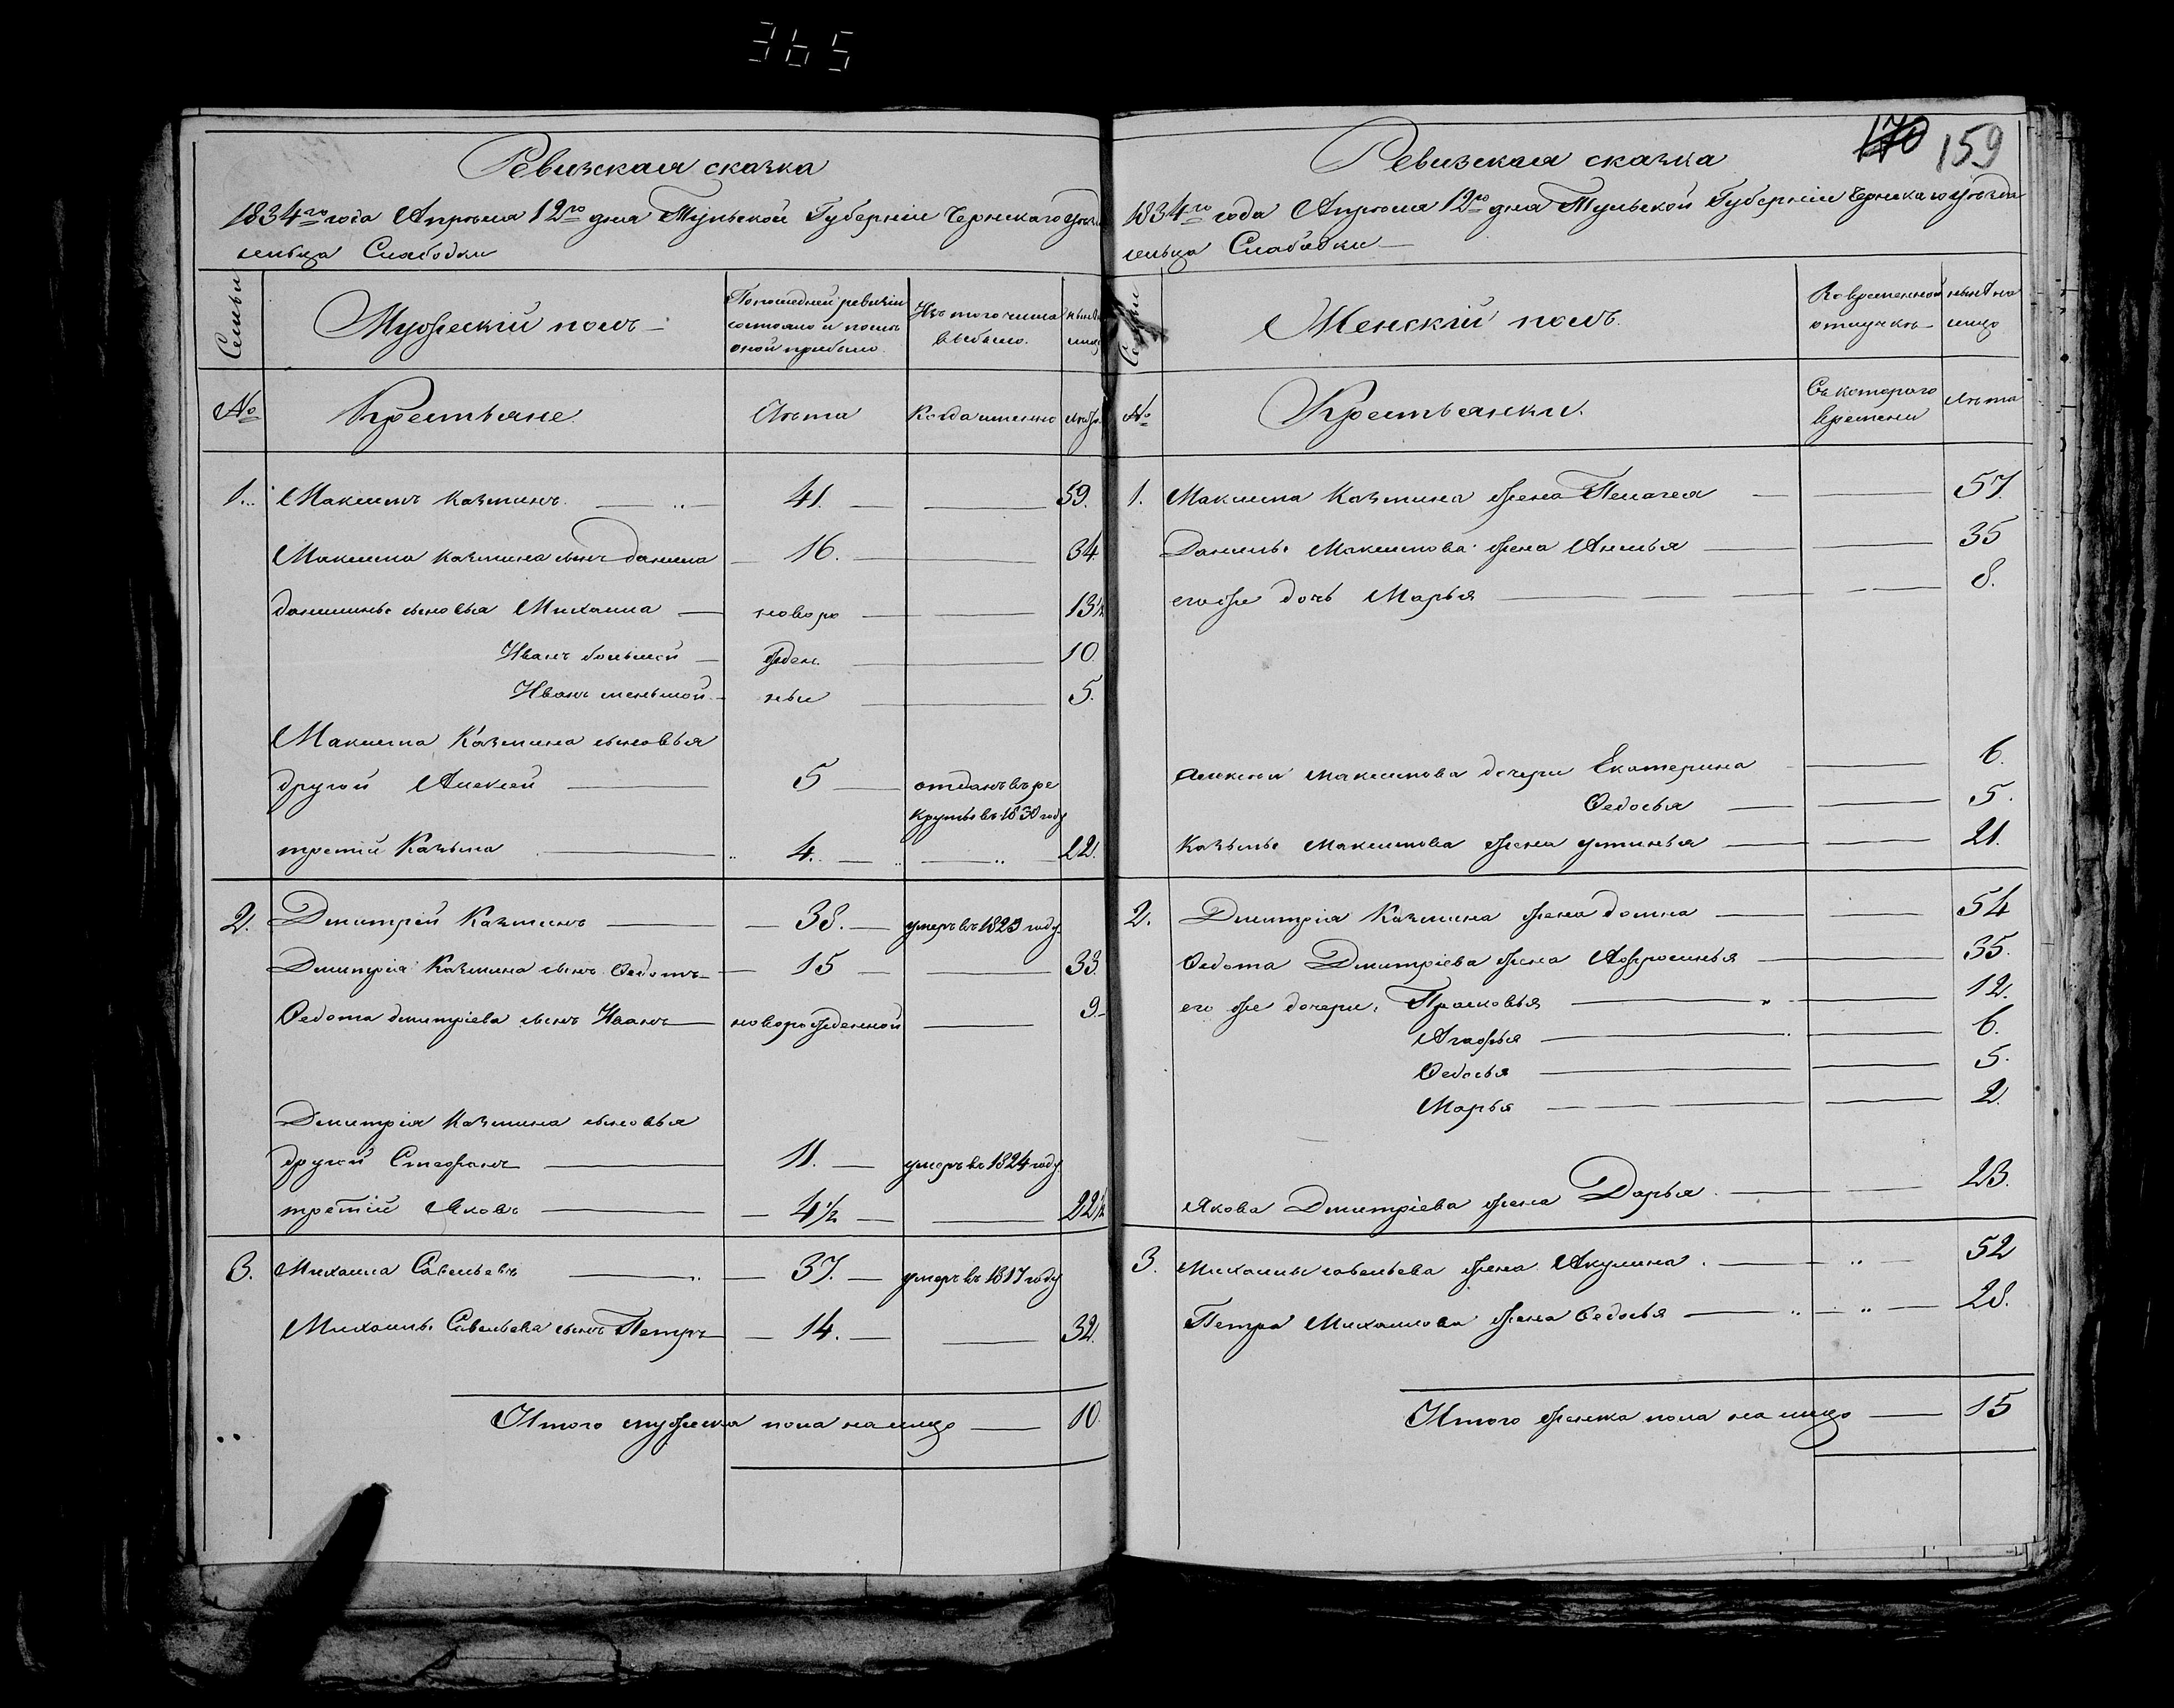 365
Ревизская сказка
1834го года Апреля 12го дня Тульской Губернiи Чернскаго уезда
сельца Слабодки
Семьи
Мужескiй полъ
По последней ревизiи
состояло и после
оной прибыло
Изъ того числа
выбыло.
ныне на
лицо
№
Крестьяне
Лета
Когда имянно
лета
1. Максимъ Казминъ 41. 59.
Максима Казмина сынъ данила 16. 34
данилины сыновья Михаила новоро 13½
Иванъ большой жден. 10
Иванъ меньшой ныи 5.
Максима Казмина сыновья
другой Алексей 5 отданъ въ ре
круты въ 1830 году
третiй Казьма 4. 22.
2. Дмитрiй Казминъ 38. умеръ въ 1823 году.
Дмитрiя Казмина сынъ Ѳедотъ 15 33.
Ѳедота дмитрiева сынъ Иванъ новорожденной 9.
Дмитрiя Казмина сыновья
другой Стефанъ 11. умеръ въ 1824 году
третiй Яковъ 4½ 22½
3. Михаила Савельевъ 37. умеръ въ 1817 году
Михаилы Савельева сынъ Петръ 14. 32.
Итого мужеска пола на лицо 10.
170 159
Ревизская сказка
1834го года Апреля 12го дня Тульской Губернiи Чернскаго уезда
сельца Слабодки
Семьи
Женскiй полъ.
Во временной
отлучке
ныне на
лицо
№
Крестьянки.
Съ которого
времени
лета
1. Максима Казмина жена Пелагея 57.
Данилы Максимова жена Анисья 35
его же дочь Марья 8.
Алексея Максимова дочери Екатерина 6.
Ѳедосья 5.
Казьмы Максимова жена устинья 21.
2. Дмитрiя Казмина жена домна 54
Ѳедота Дмитрiева жена Афросинья 35.
его же дочери, Прасковья 12.
Агафья 6.
Ѳедосья 5.
Марья 2.
Якова Дмитрiева жена Дарья 23.
3. Михаилы савельева жена Акулина 52
Петра Михаилова жена Ѳедосья 28.
Итого женска пола на лицо 15